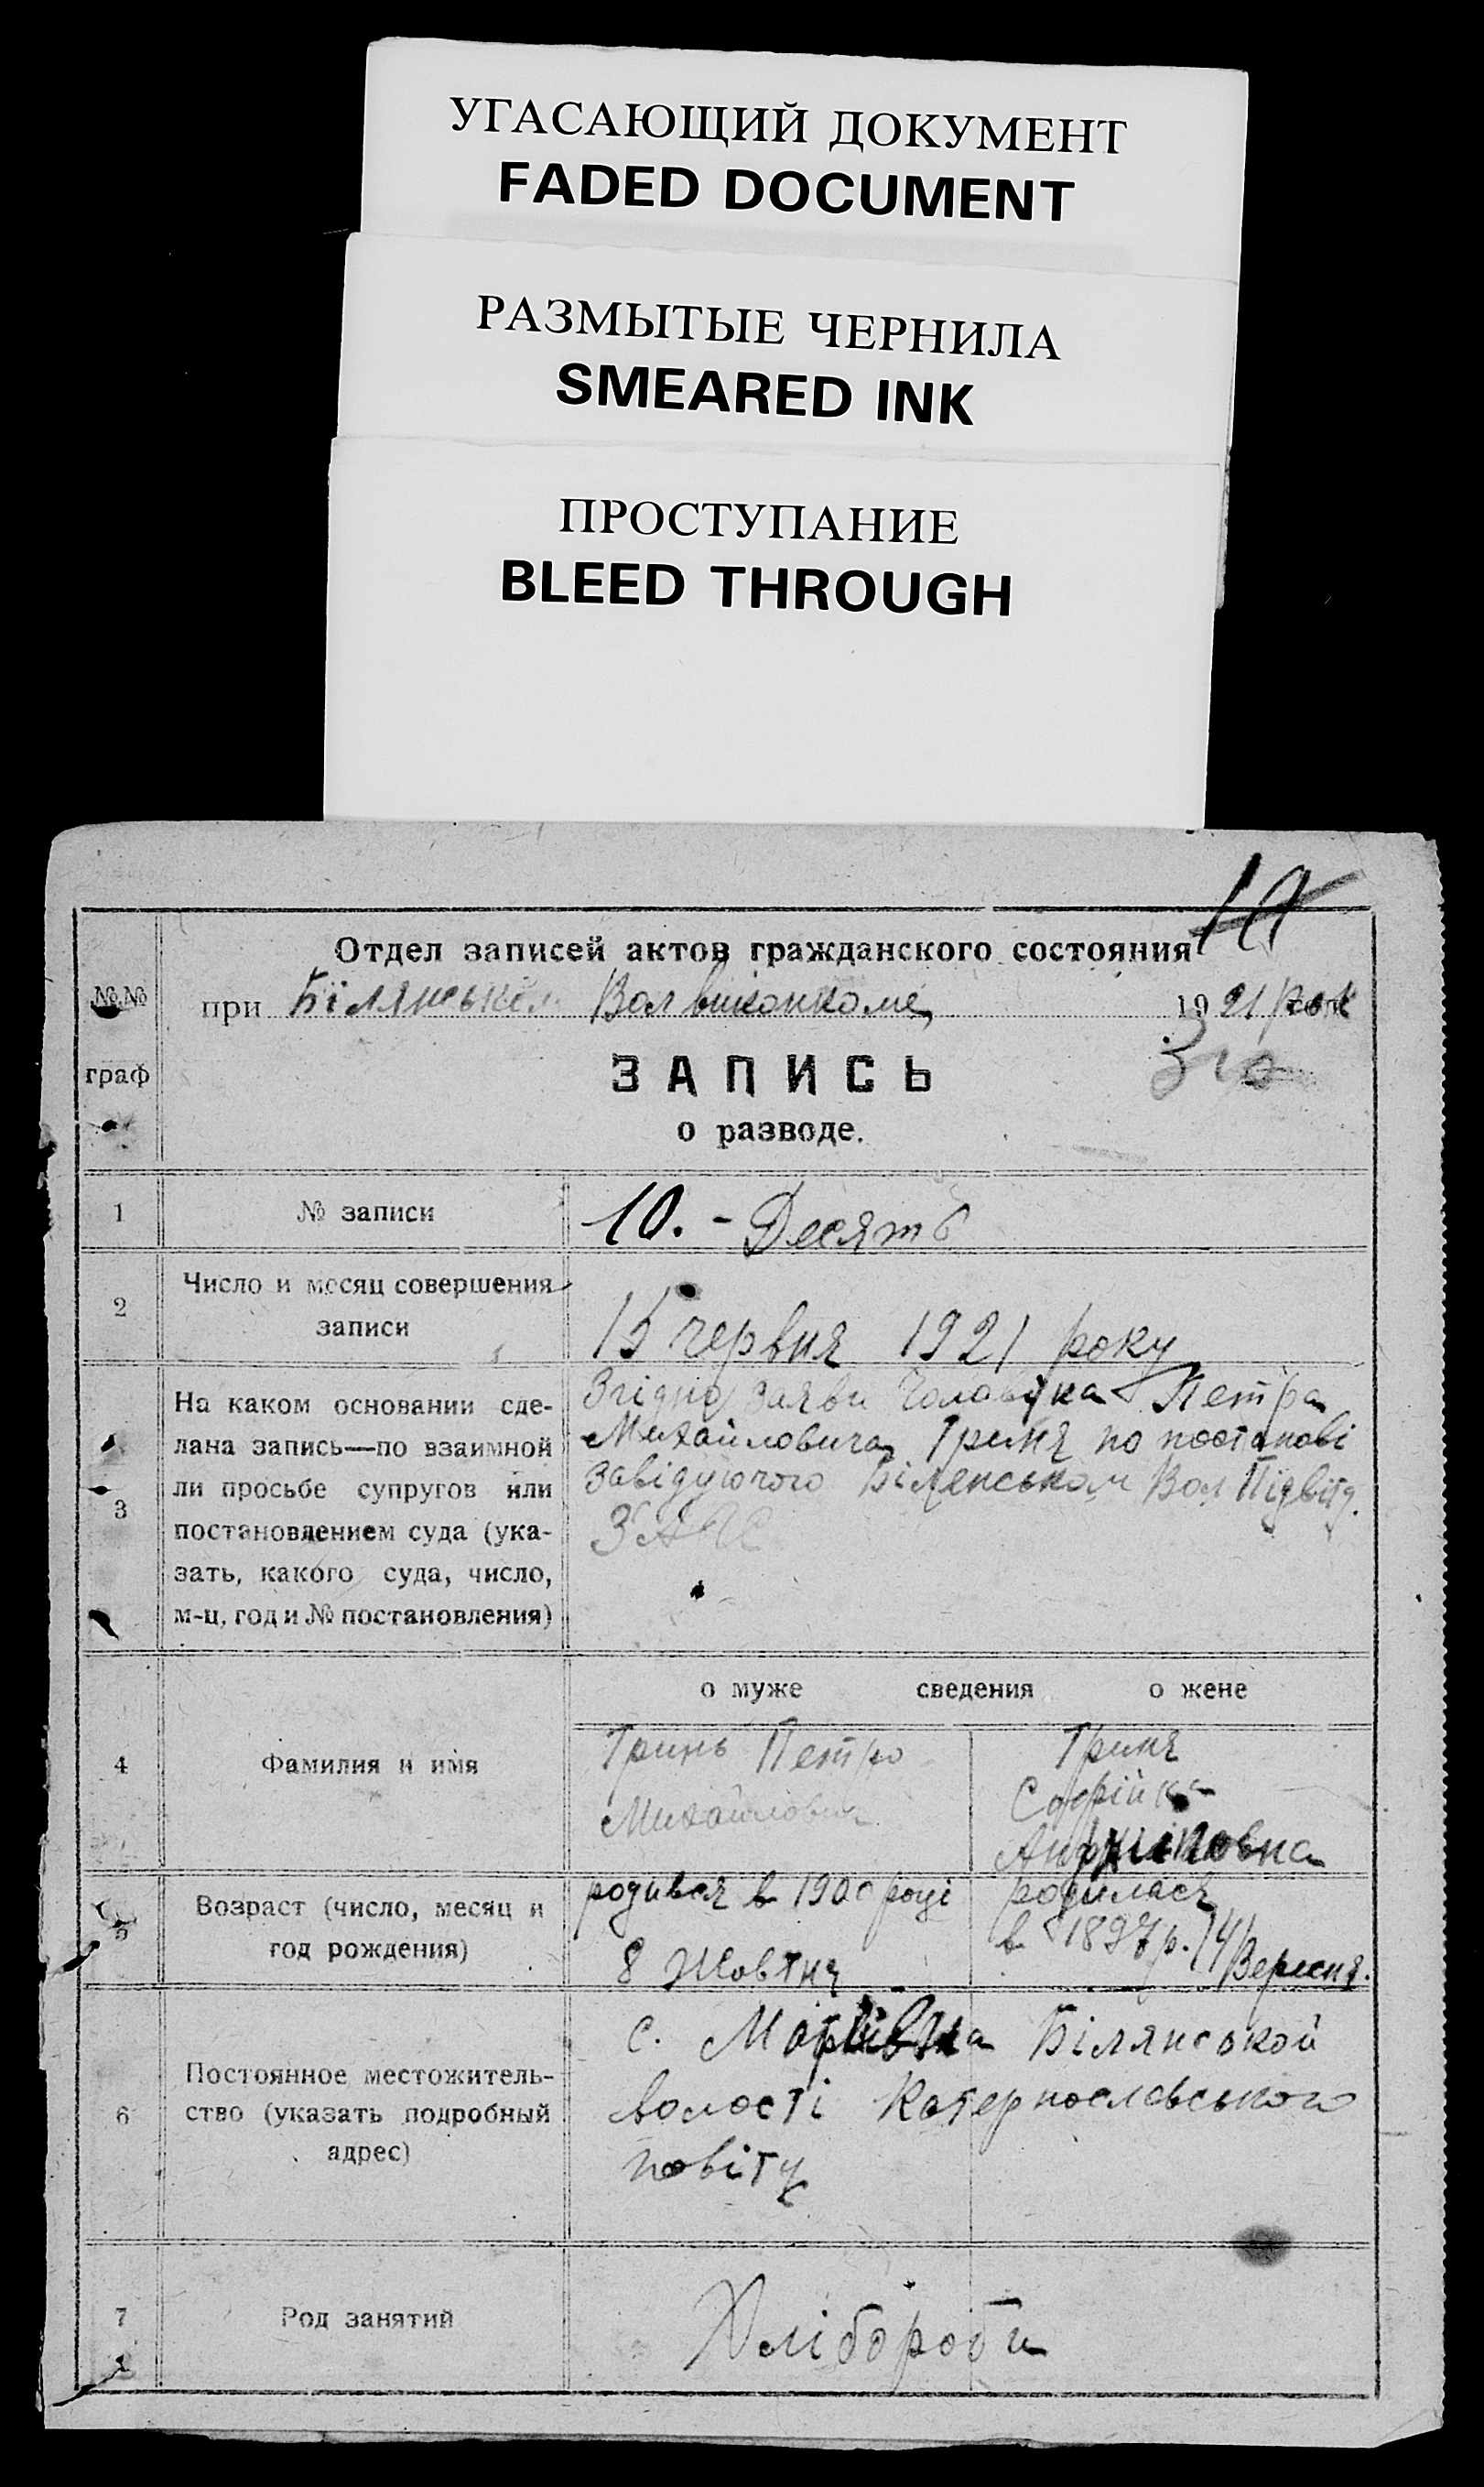 УГАСАЮЩИЙ ДОКУМЕНТ
FADED DOCUMENT
РАЗМЫТЫЕ ЧЕРНИЛА
SMEARED INK
ПРОСТУПАНИЕ
BLEED THROUGH
10
Отдел записей актов гражданского состояния
№№ граф
при Білянськом Волвиконкоме, 1921 рок
ЗАПИСЬ
о разводе.
1 № записи 10. - Десять
2 Число и месяц совершения
записи 15 червня 1921 року
3 На каком основании сде-
лана запись—по взаимной
ли просьбе супругов или
постановлением суда (ука-
зать, какого суда, число,
м-ц, год и № постановления)
Згідно заяви Чоловіка Петра
Михайловича Гриня по постанові
Завідуючого Біленськом Вол Підвідд.
ЗАГС
о муже сведения о жене
4 Фамилия и имя
Гринь Петро
Михайлович
Гриня
Софійка
5 Возраст (число, месяц и
год рождения)
родився в 1900 році
8 Жовтня
родилась
в 1897 р. 14 Вересня.
6 Постоянное местожитель-
ство (указать подробный
адрес)
с. Мар'ївка Білянської
волості Катеринославського
повіту
7 Род занятий Хлібороби